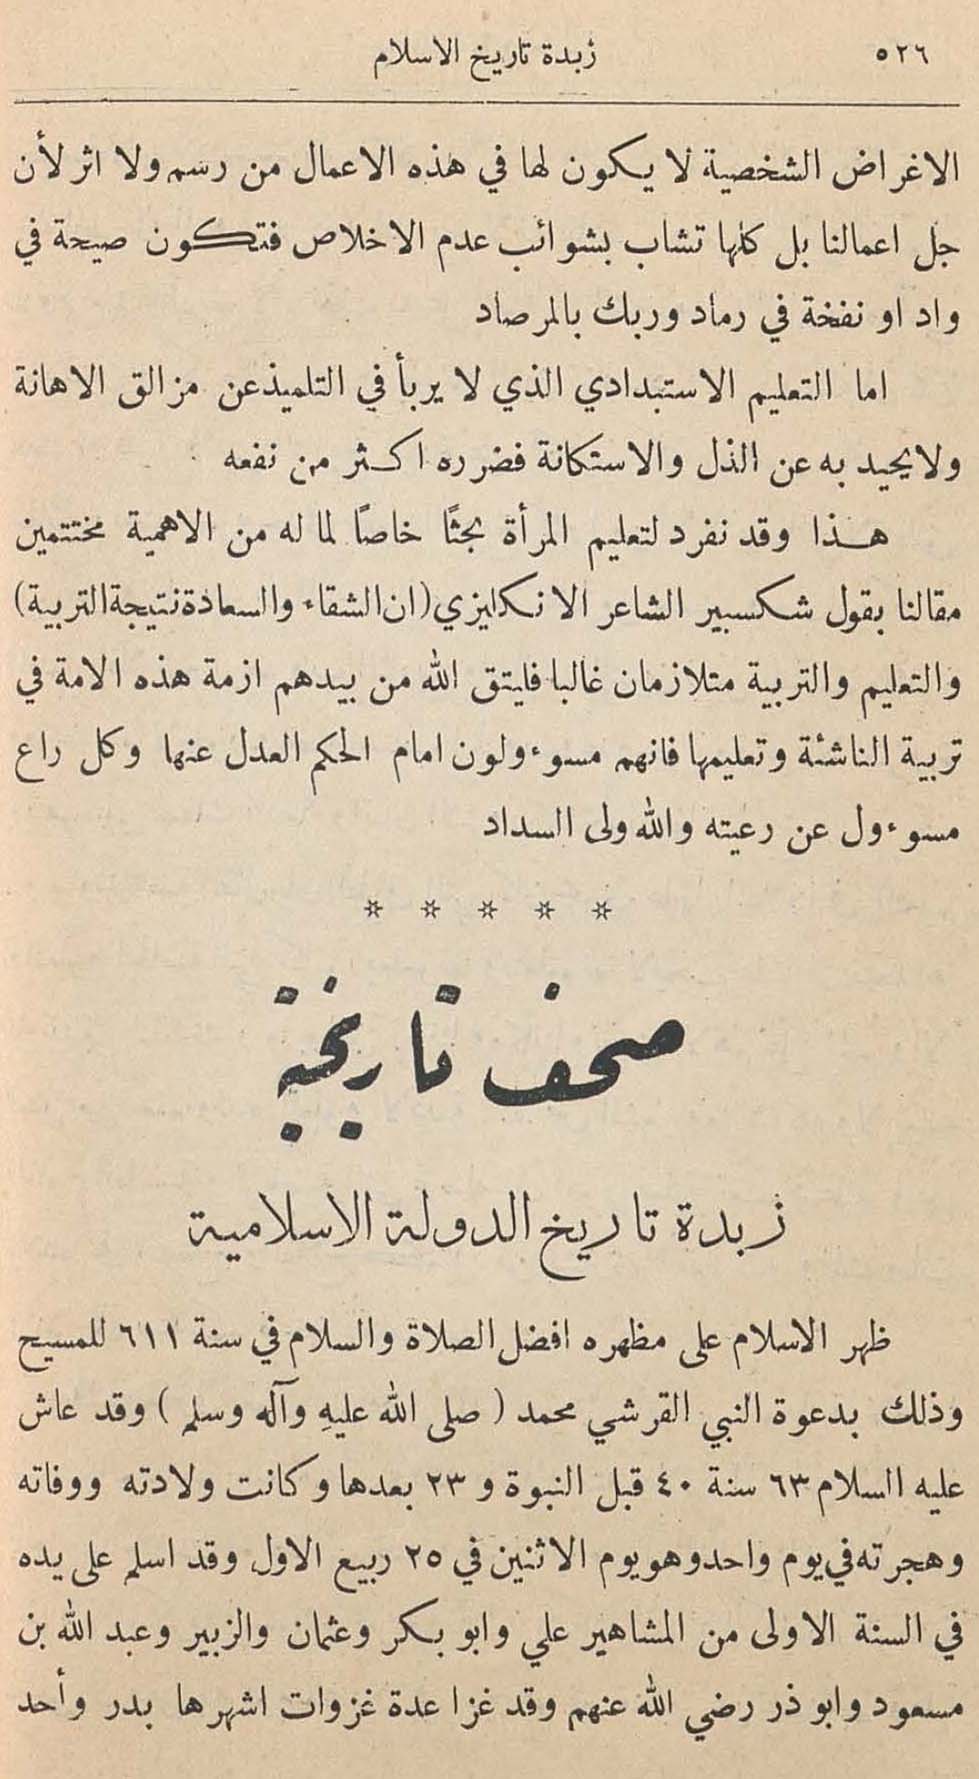 ٥٢٦
زبدة تاريخ الاسلام
الاغراض الشخصية لا يكون لها في هذه الاعمال من رسم ولا اثر لأن
جل اعمالنا بل كلها تشاب بشوائب عدم الاخلاص فتكون صيحة في
واد او نفخة في رماد وربك بالمرصاد
اما التعليم الاستبدادي الذي لا يربأ في التلميذ عن مزالق الاهانة
ولا يحيد به عن الذل والاستكانة فضرره اكثر من نفعه
هذا وقد نفرد لتعليم المرأة بحثًا خاصًا لما له من الاهمية مختتمين
مقالنا بقول شكسبير الشاعر الانكليزي (ان الشقاء والسعادة نتيجة التربية)
والتعليم والتربية متلازمان غالبا فليتق الله من بيدهم ازمة هذه الامة في
تربية الناشئة وتعليمها فانهم مسوءولون امام الحكم العدل عنها وكل راع
مسوءول عن رعيته والله ولى السداد
* * * * *
صحف تاريخية
زبدة تاريخ الدولة الاسلامية
ظهر الاسلام على مظهره افضل الصلاة والسلام في سنة ٦١١ للمسيح
وذلك بدعوة النبي القرشي محمد (صلى الله عليهِ وآله وسلم) وقد عاش
عليه السلام ٦٣ سنة ٤٠ قبل النبوة و ٢٣ بعدها وكانت ولادته ووفاته
وهجرته في يوم واحد وهو يوم الاثنين في ٢٥ ربيع الاول وقد اسلم على يده
في السنة الاولى من المشاهير علي وابو بكر وعثمان والزبير وعبد الله بن
مسعود وابو ذر رضي الله عنهم وقد غزا عدة غزوات اشهرها بدر وأحد